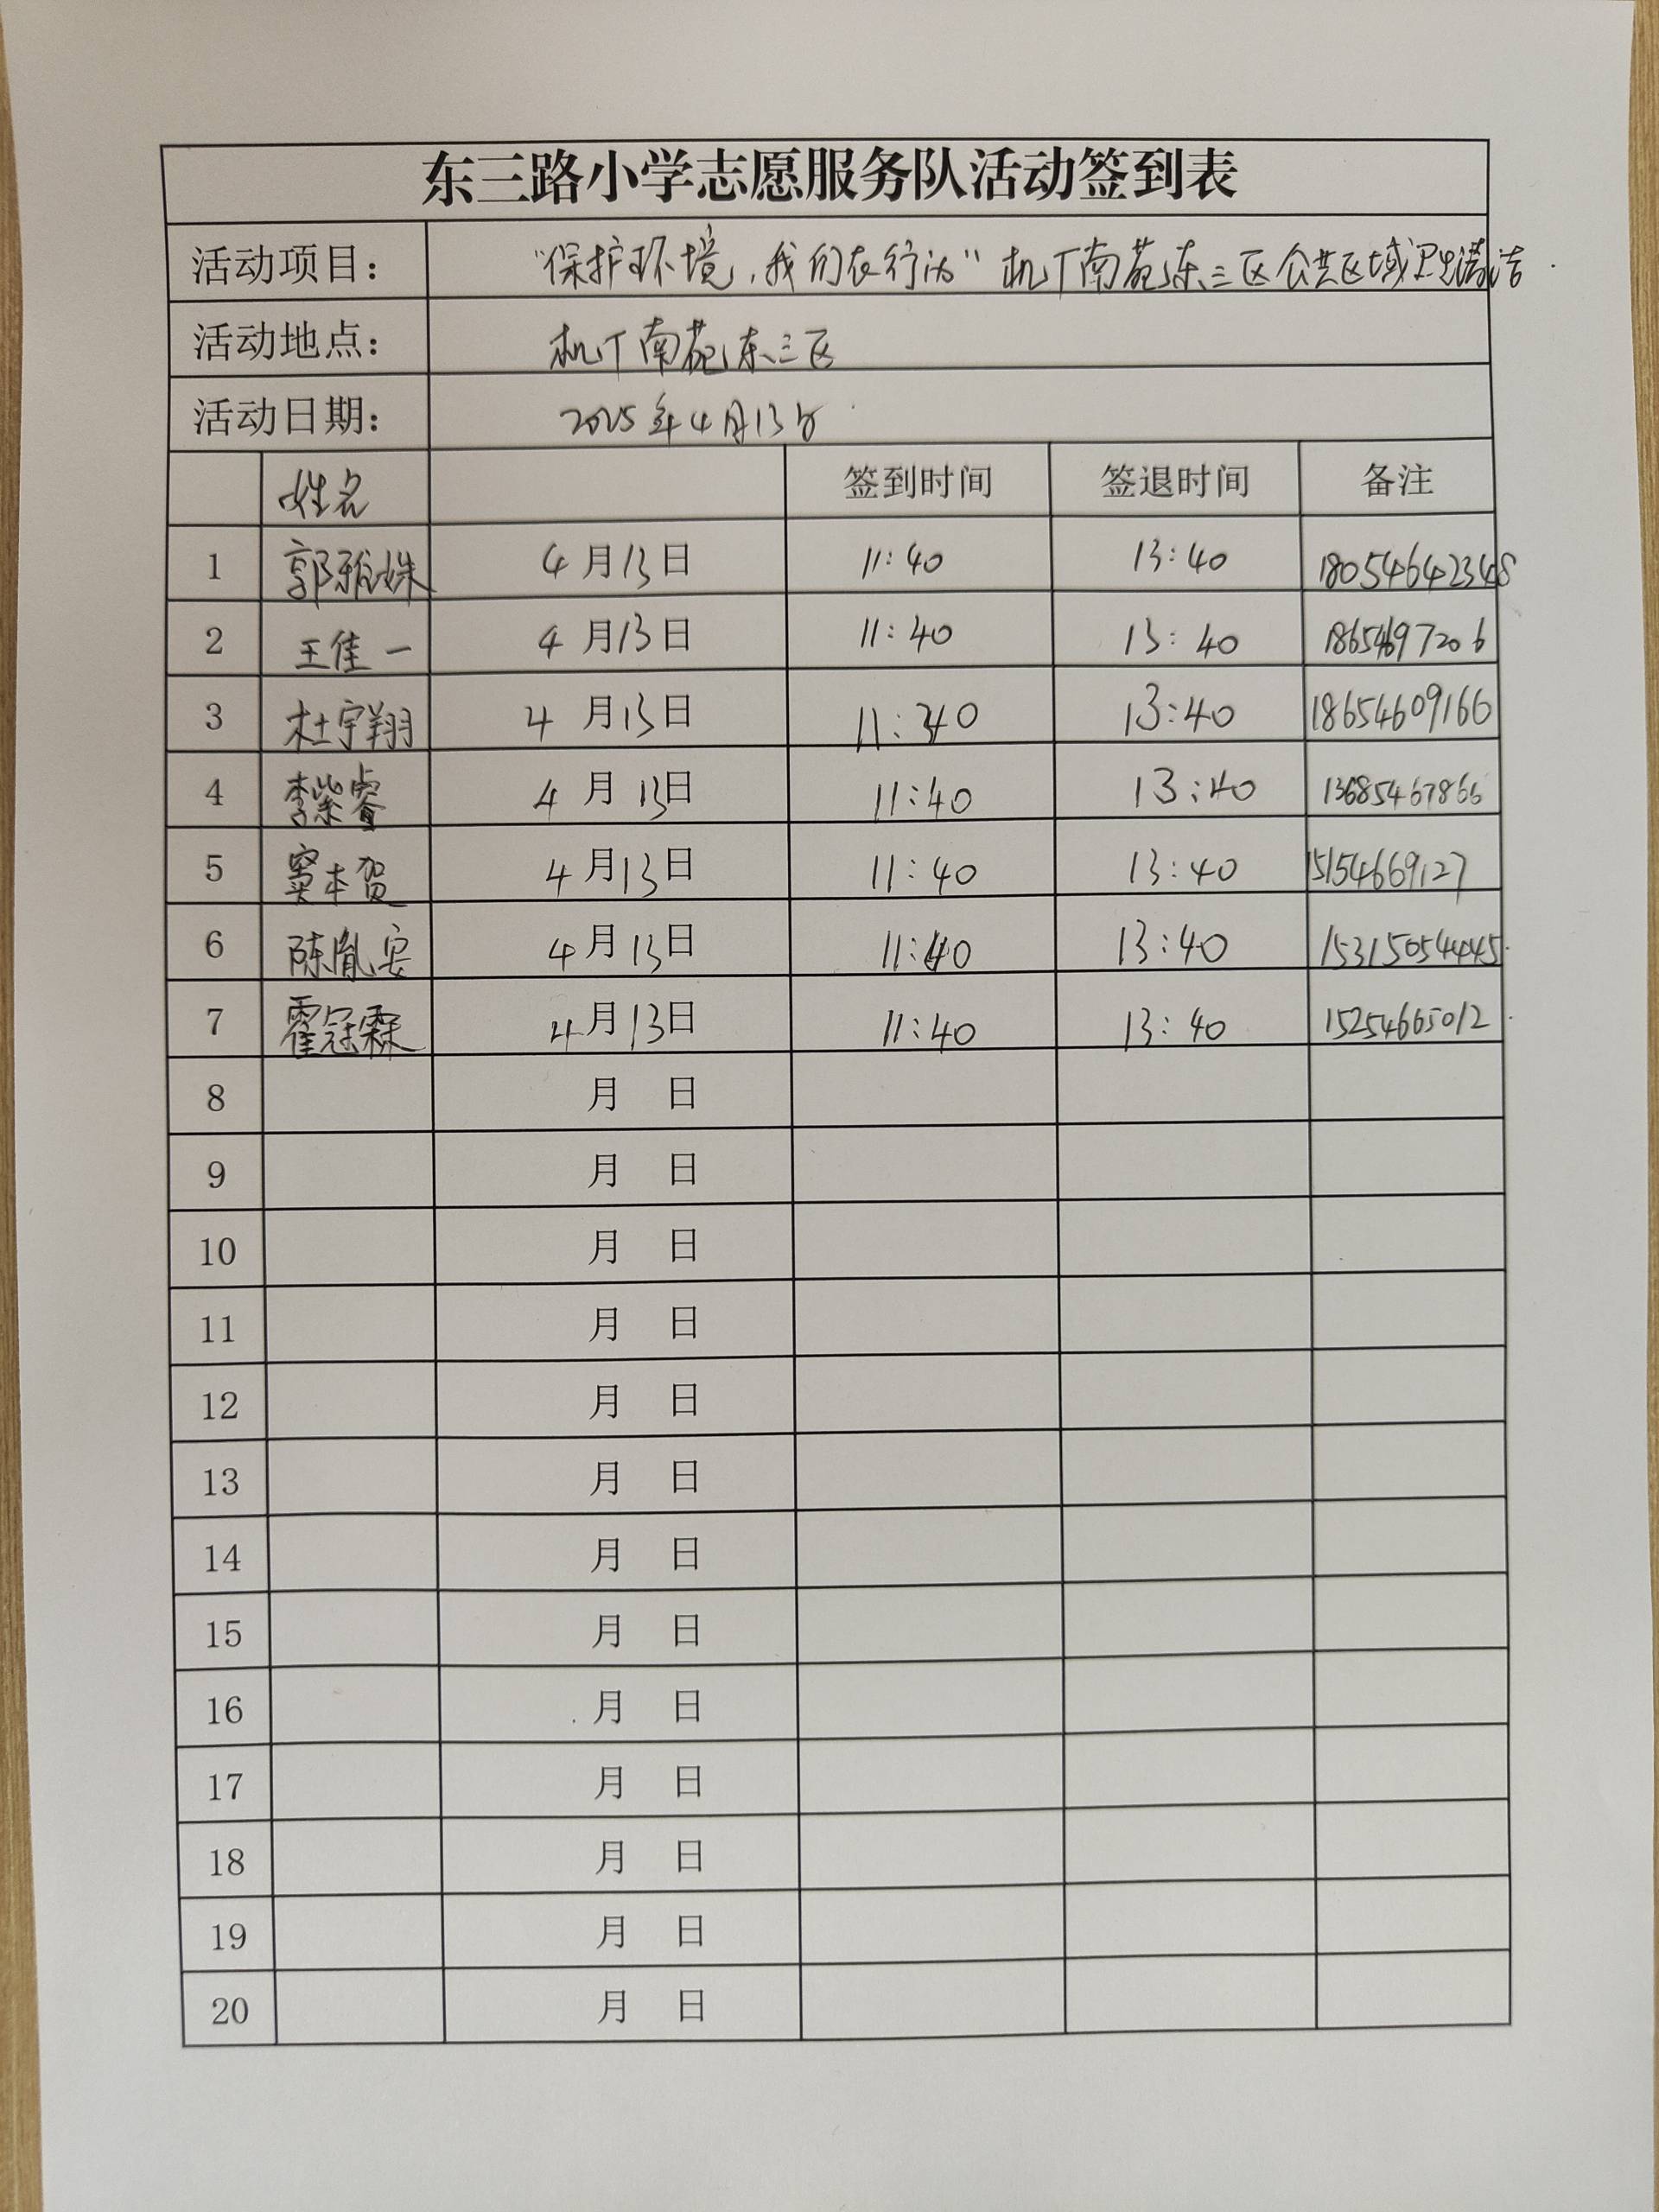 东三路小学志愿服务队活动签到表
活动项目： “保护环境，我们在行动” 机厂南苑东三区公共区域卫生清洁
活动地点： 机厂南苑东三区
活动日期： 2025年4月13日
姓名 签到时间 签退时间 备注
1 郭雅姝 4月13日 11:40 13:40 18054642348
2 王佳一 4月13日 11:40 13:40
3 杜宇翔 4月13日 11:40 13:40 18654609166
4 李紫睿 4月13日 11:40 13:40 13685467866
5 窦本贺 4月13日 11:40 13:40 15154669127
6 陈胤安 4月13日 11:40 13:40
7 霍冠霖 4月13日 11:40 13:40 15254665012
8 月 日
9 月 日
10 月 日
11 月 日
12 月 日
13 月 日
14 月 日
15 月 日
16 月 日
17 月 日
18 月 日
19 月 日
20 月 日